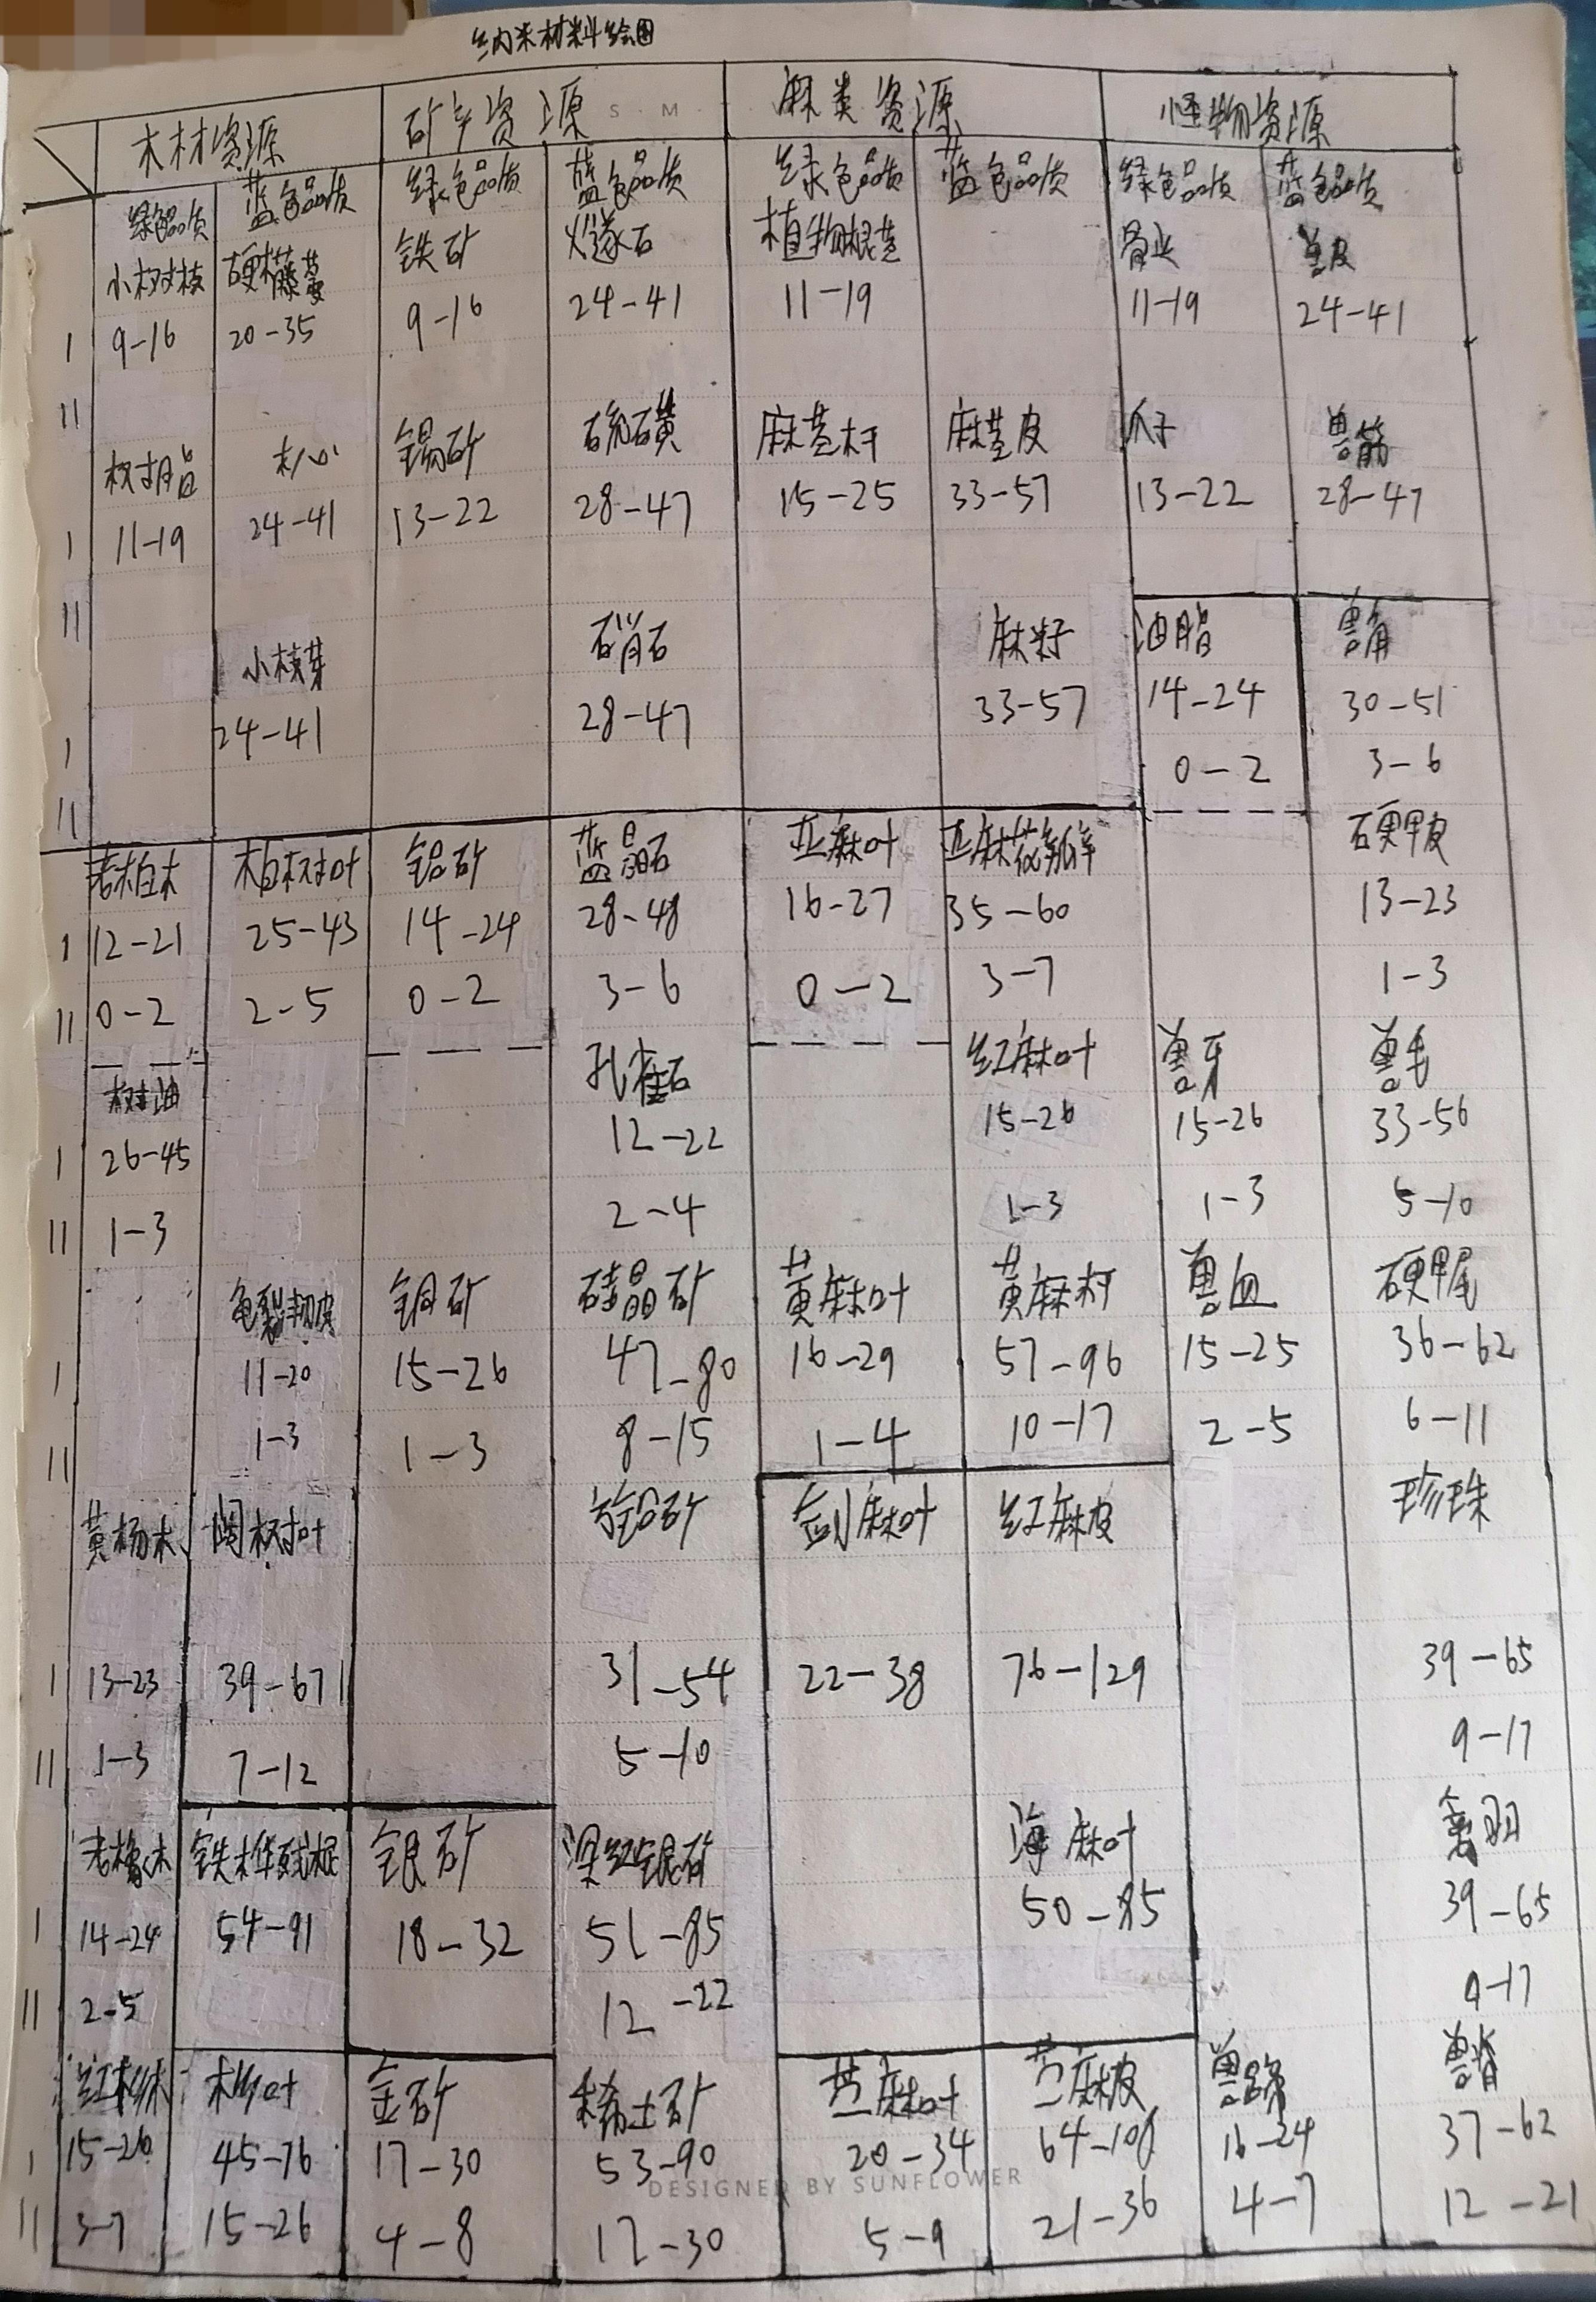 纳米材料绘图
木材资源 矿产资源 麻类资源 怪物资源
S·M·T·
绿色品质 蓝色品质 绿色品质 蓝色品质 绿色品质 蓝色品质 绿色品质 蓝色品质
小树枝 硬橘藤蔓 铁矿 火燧石 植物根茎 骨头 兽皮
I 9-16 20-35 9-16 24-41 11-19 11-19 24-41
II
树脂 木心 锡矿 硫磺 麻茎杆 麻茎皮 爪子 兽筋
I 11-19 24-41 13-22 28-47 15-25 33-57 13-22 28-47
II
小枝芽 硝石 麻籽 油脂 兽角
I 24-41 28-47 33-57 14-24 30-51
II 0-2 3-6
老柏木 柏树叶 铝矿 蓝晶石 亚麻叶 亚麻花瓣 硬甲皮
I 12-21 25-43 14-24 28-48 16-27 35-60 13-23
II 0-2 2-5 0-2 3-6 0-2 3-7 1-3
树油 孔雀石 红麻叶 兽牙 兽毛
I 26-45 12-22 15-26 15-26 33-56
II 1-3 2-4 1-3 1-3 5-10
龟裂韧皮 铜矿 硅晶矿 黄麻叶 黄麻杆 兽血 硬甲尾
I 11-20 15-26 47-80 16-29 57-96 15-25 36-62
II 1-3 1-3 8-15 1-4 10-17 2-5 6-11
黄杨木 阔树叶 剑麻叶 红麻皮 珍珠
I 13-23 39-67 31-54 22-38 76-129 39-65
II 1-3 7-12 5-10 9-17
老橡木 铁桦残根 银矿 深红银矿 海麻叶
I 14-24 54-91 18-32 51-85 50-85 39-65
II 2-5 12-22 9-17
红松木 松叶 金矿 稀土矿 苎麻叶 苎麻皮
I 15-26 45-76 17-30 53-90 20-34 64-108 16-24 37-62
DESIGNED BY SUNFLOWER
II 3-7 15-26 4-8 17-30 5-9 21-36 4-7 12-21